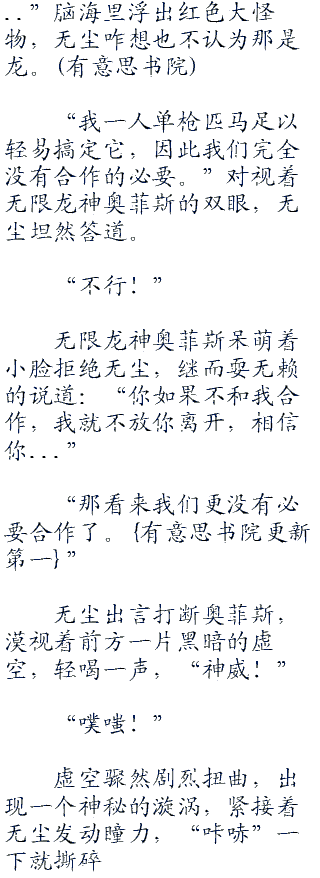 ..”脑海里浮出红色大怪
物，无尘咋想也不认为那是
龙。(有意思书院)
“我一人单枪匹马足以
轻易搞定它，因此我们完全
没有合作的必要。”对视着
无限龙神奥菲斯的双眼，无
尘坦然答道。
“不行！”
无限龙神奥菲斯呆萌着
小脸拒绝无尘，继而耍无赖
的说道：“你如果不和我合
作，我就不放你离开，相信
你...”
“那看来我们更没有必
要合作了。{有意思书院更新
第一}”
无尘出言打断奥菲斯，
漠视着前方一片黑暗的虚
空，轻喝一声，“神威！”
“噗嗤！”
虚空骤然剧烈扭曲，出
现一个神秘的漩涡，紧接着
无尘发动瞳力，“咔哧”一
下就撕碎